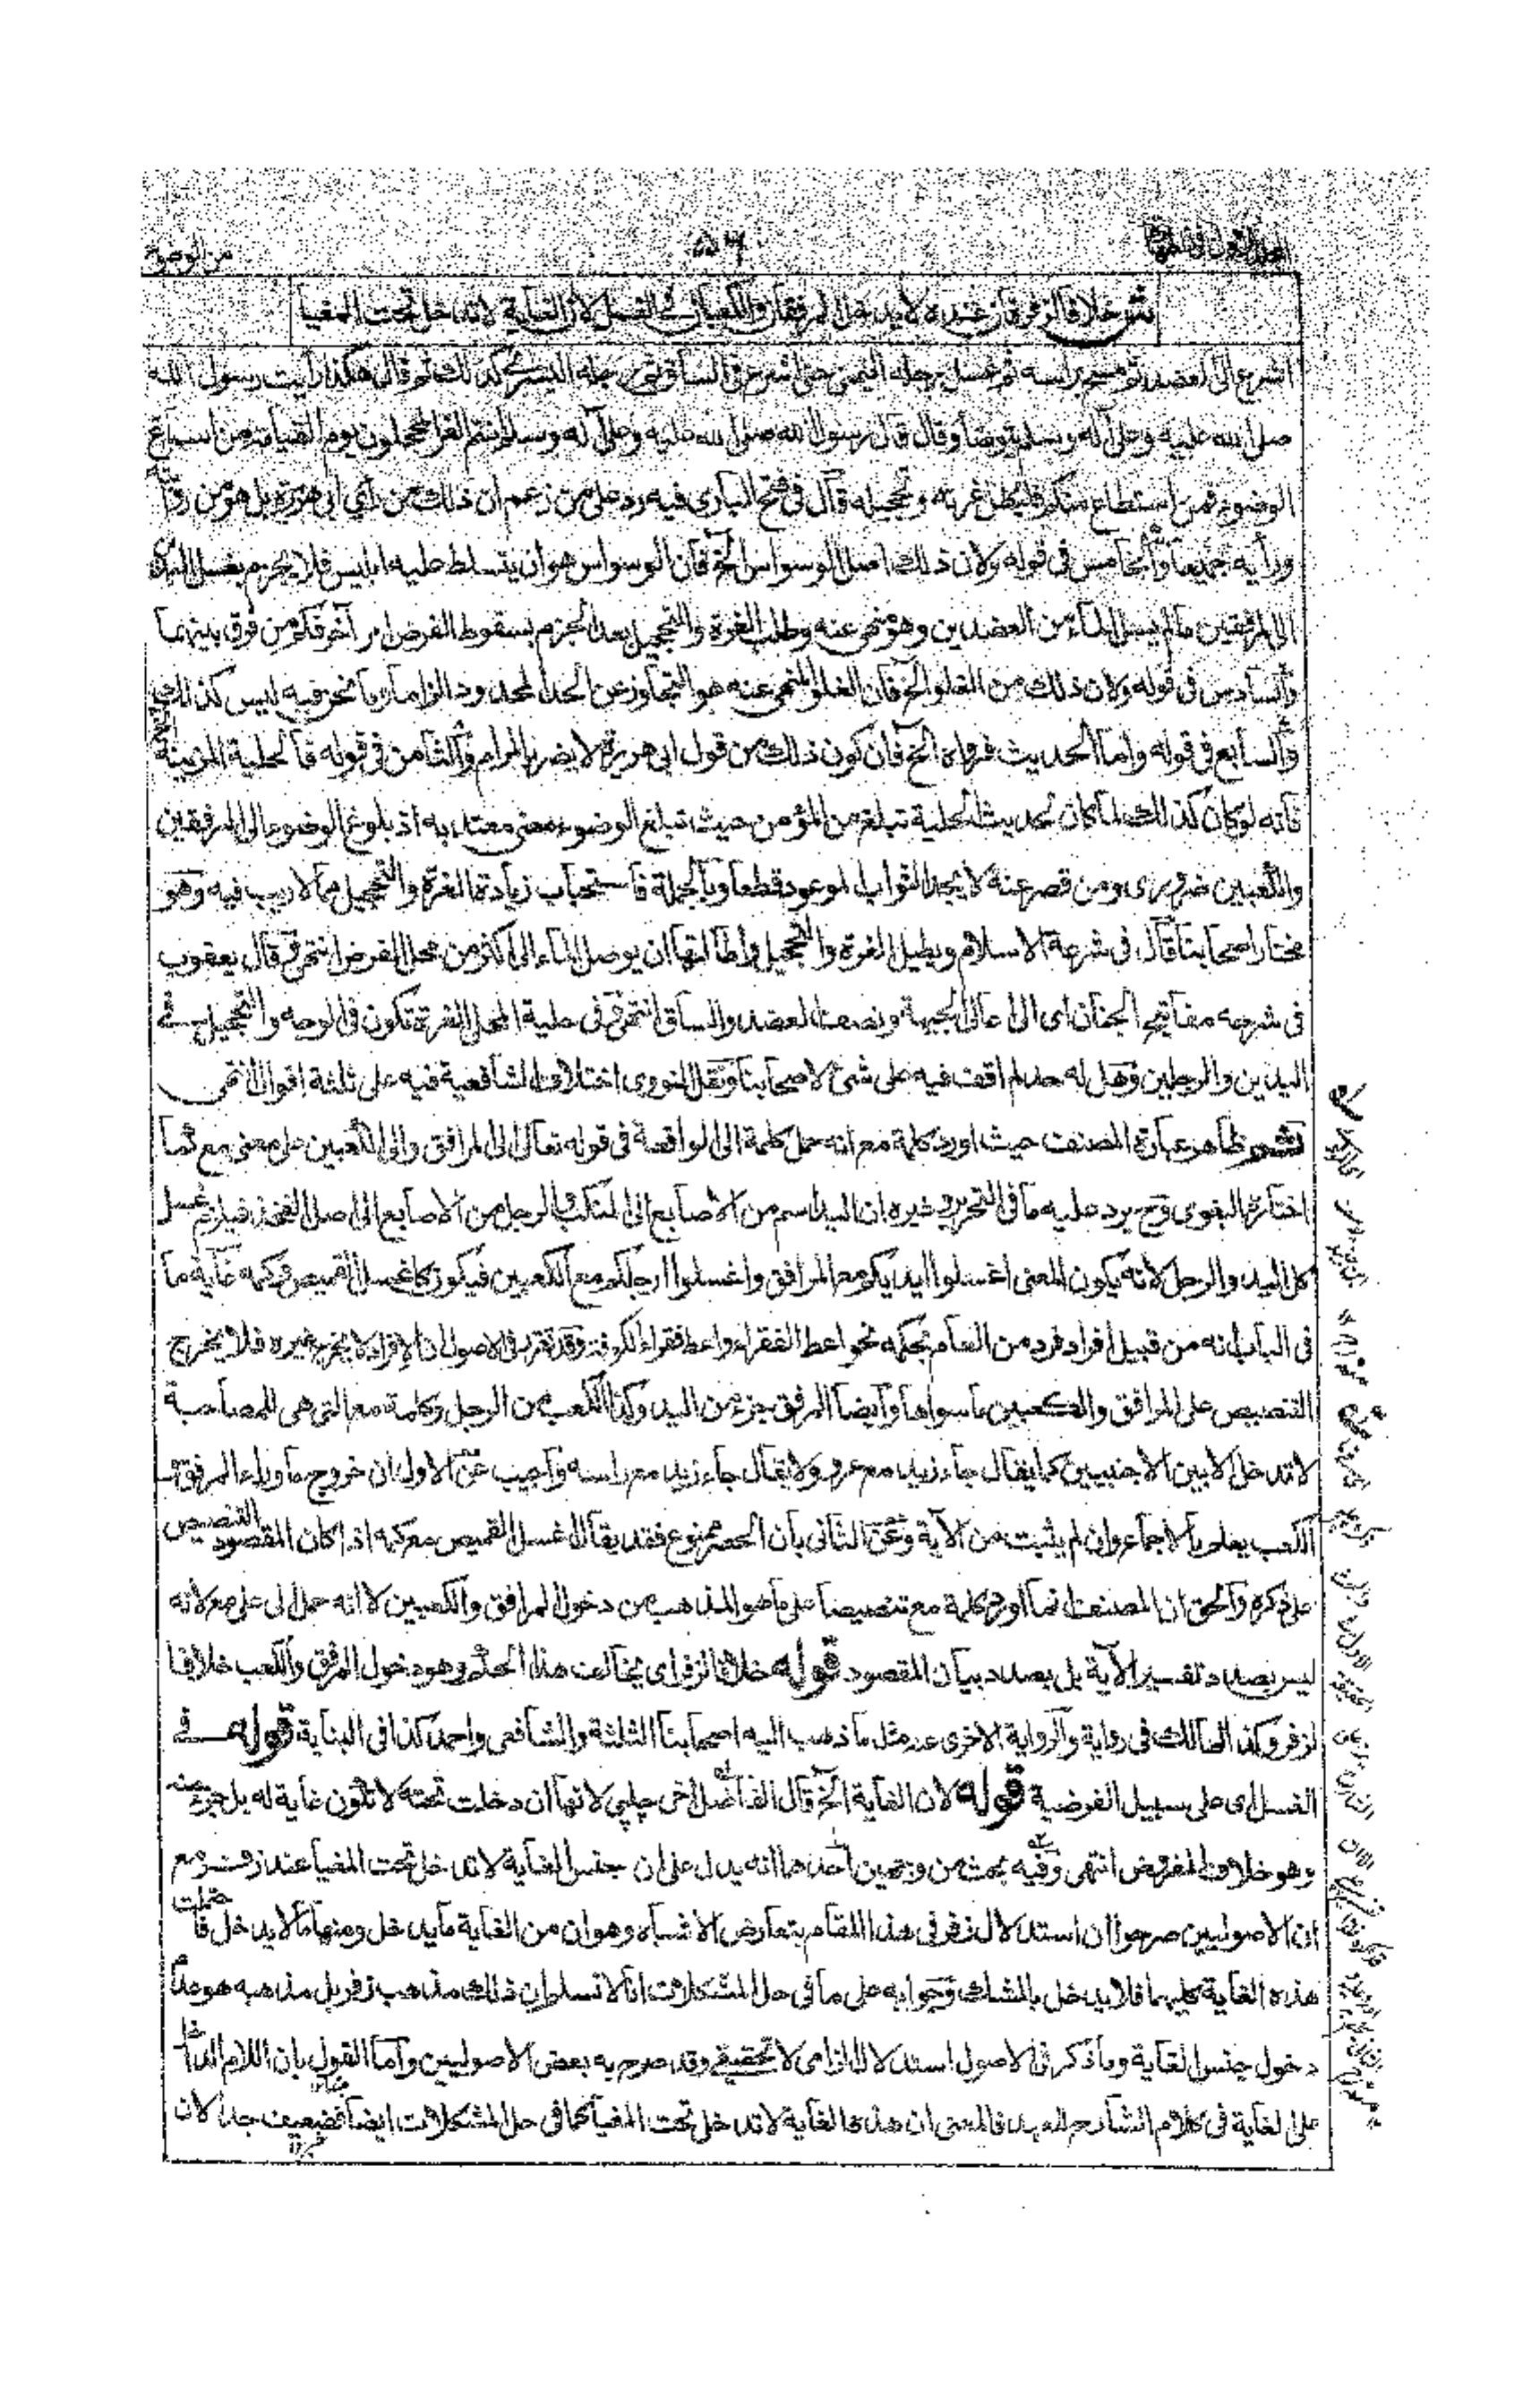 ۵۶
من الوضوء
ش خلافا لزفر فان عنده لا يدخل المرفقان والكعبان في الغسل لان الغاية لا تدخل تحت المغيا
اشرع الى العضد ثم مسح براسه ثم غسل رجله اليمنى حتى اشرع في الساق ثم رجله اليسرى كذلك ثم قال هكذا رايت رسول الله
صلى الله عليه وعلى آله وسلم يتوضأ وقال قال رسول الله صلى الله عليه وعلى آله وسلم انتم الغر المحجلون يوم القيامة من اسباغ
الوضوء فمن استطاع منكم فليطل غرته وتحجيله قال في فتح البارى فيه رد على من زعم ان ذلك من رأي ابي هريرة بل هو من روايته
ورأيه جميعا والخامس فى قوله ولان ذلك اصل الوسواس الخ فان الوسواس هو ان يتسلط عليه ابليس فلا يجزم بغسل اليد
الى المرفقين مالم يسل الماء من العضدين وهو منهى عنه وطلب الغرة والتحجيل بعد الجزم بسقوط الفرض امر آخر فكم من فرق بينهما
والسادس فى قوله ولان ذلك من الغلو الخ فان الغلو المنهى عنه هو التجاوز عن الحد المحدود الزاما وما نحن فيه ليس كذلك
والسابع فى قوله واما الحديث فرواه الخ فان كون ذلك من قول ابى هريرة لا يضر بالمرام والثامن فى قوله فالحلية المزينة
فانه لو كان كذلك لما كان لحديث الحلية تبلغ من المؤمن حيث تبلغ الوضوء معنى معتد به اذ بلوغ الوضوء الى المرفقين
والكعبين ضرورى ومن قصر عنه لا يجد الثواب الموعود قطعا وبالجملة فاستحباب زيادة الغرة والتحجيل مما لا ريب فيه وهو
مختار اصحابنا قال فى شرعة الاسلام ويطيل الغرة والتحجيل واطالتها ان يوصل الماء الى اكثر من محل الفرض انتهى قال يعقوب
فى شرحه مفاتيح الجنان اى الى اعالى الجبهة ونصف العضد والساق انتهى وفى حلية المحلى الغرة تكون فى الوجه والتحجيل فى
اليدين والرجلين وهل له حد لم اقف فيه على شئ لاصحابنا ونقل النووى اختلاف الشافعية فيه على ثلثة اقوال انتهى
ش ظاهر عبارة المصنف حيث اورد كلمة مع انه حمل كلمة الى الواقعة فى قوله تعالى الى المرافق والى الكعبين على معنى مع كما
اختاره البغوى وح يرد عليه ما فى التحرير وغيره ان اليد اسم من الاصابع الى المنكب والرجل من الاصابع الى اصل الفخذ فيلزم غسل
كل اليد والرجل لانه يكون المعنى اغسلوا ايديكم مع المرافق واغسلوا ارجلكم مع الكعبين فيكون كاغسل القميص وكمه غاية ما
فى الباب انه من قبيل افراد فرد من العام بحكمه نحو اعط الفقراء واعط فقراء الكوفة وقد تقرر فى الاصول ان الافراد لا يخرج غيره فلا يخرج
التنصيص على المرافق والكعبين ما سواها وايضا المرفق جزء من اليد وكذا الكعب من الرجل وكلمة مع التى هى للمصاحبة
لا تدخل الا بين الاجنبيين كما يقال جاء زيد مع عمرو ولا يقال جاء زيد مع راسه واجيب عن الاول ان خروج ما وراء المرفق و
الكعب يعلم بالاجماع وان لم يثبت من الآية وعن الثانى بان الحصر ممنوع فقد يقال اغسل القميص مع كمه اذا كان المقصود التنصيص
على ذكره والحق ان المصنف انما اورد كلمة مع تنصيصا على ما هو المذهب من دخول المرافق والكعبين لا انه حمل الى على مع لانه
ليس بصدد تفسير الآية بل بصدد بيان المقصود قوله خلافا لزفر اى يخالف هذا الحكم وهو دخول المرفق والكعب خلافا
لزفر وكذا لمالك فى رواية والرواية الاخرى عنه مثل ما ذهب اليه اصحابنا الثلثة والشافعى واحمد كذا فى البناية قوله فى
الغسل اى على سبيل الفرضية قوله لان الغاية الخ قال الفاضل اخى چلپي لانها ان دخلت تحته لا تكون غاية له بل جزء منه
وهو خلاف المفروض انتهى وفيه بحث من وجهين احدهما انه يدل على ان جنس الغاية لا تدخل تحت المغيا عند زفر مع
ان الاصوليين صرحوا ان استدلال زفر فى هذا المقام بتعارض الاشباه وهو ان من الغاية ما يدخل ومنها ما لا يدخل فاحتملت
هذه الغاية كليهما فلا يدخل بالشك وجوابه على ما فى حل المشكلات انا لا نسلم ان ذلك مذهب زفر بل مذهبه هو عدم
دخول جنس الغاية وما ذكر فى الاصول استدلال الزامى لا تحقيقى وقد صرح به بعض الاصوليين واما القول بان اللام الداخل
على الغاية فى كلام الشارح للعهد فالمعنى ان هذه الغاية لا تدخل تحت المغيا كما فى حل المشكلات ايضا فضعيف جدا لان